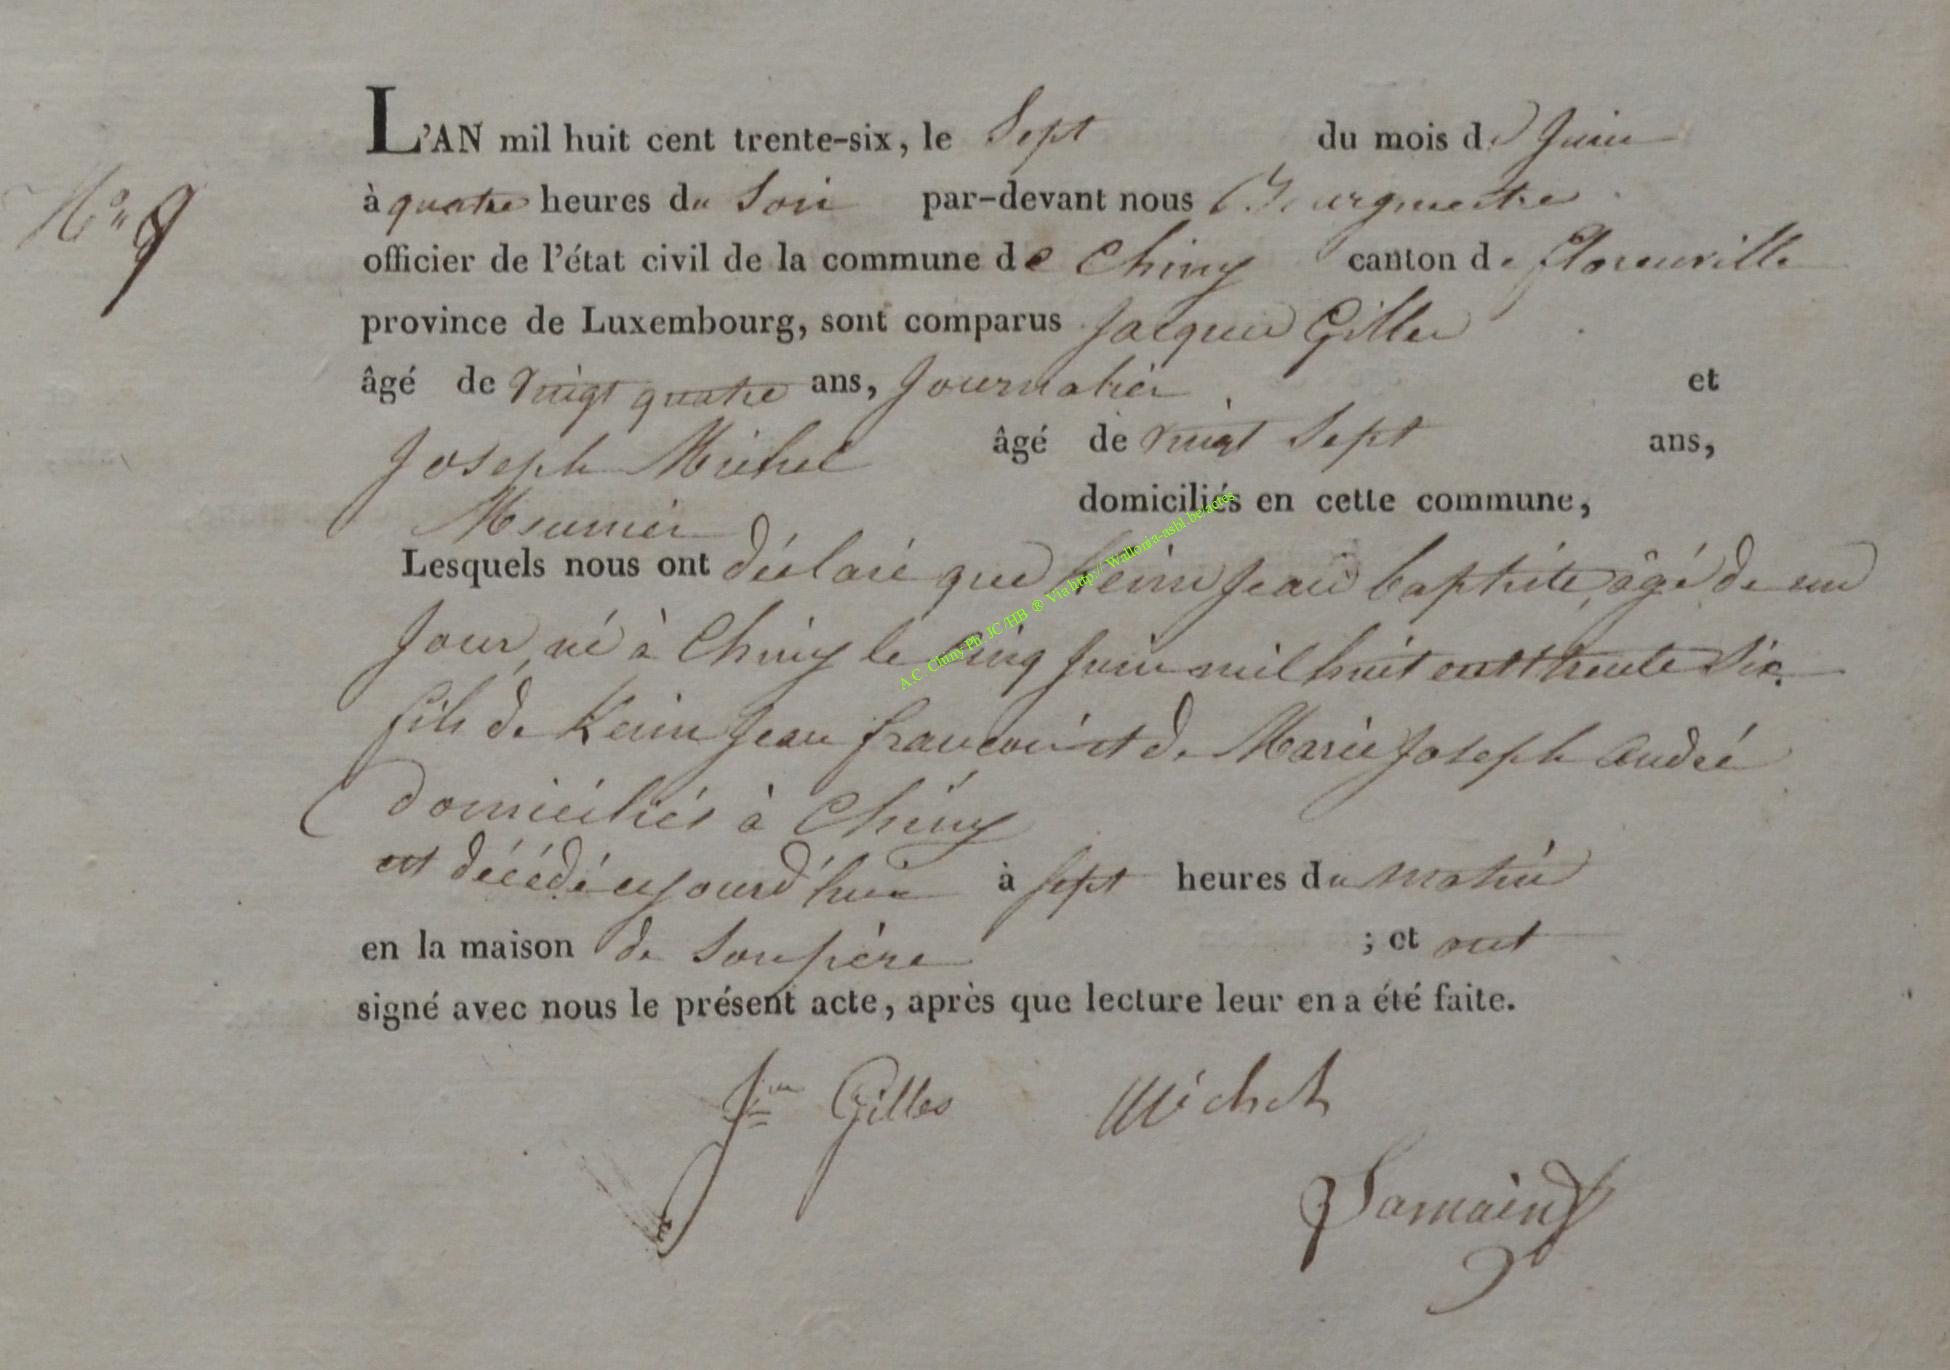 L'AN mil huit cent trente-six, le Sept du mois de Juin
N° 9
à quatre heures du Soir par-devant nous Bourgmestre
officier de l'état civil de la commune de Chiny canton de florenville
province de Luxembourg, sont comparus Jacques Gilles
âgé de vingt quatre ans, Journalier et
Joseph Michel âgé de vingt Sept ans,
Meunier domiciliés en cette commune,
Lesquels nous ont déclaré que Keim Jean baptiste, âgé de un
Jour, né à Chiny le Cinq Juin mil huit cent trente Six
fils de Keim Jean francois et de Marie Joseph André
domiciliés à Chiny
est décédé cejourd'hui à Sept heures du matin
en la maison de Son père ; et ont
signé avec nous le présent acte, après que lecture leur en a été faite.
Gilles Michel
Samain
A.C. Chiny Ph. JC/HB ® Via http:// Wallonia-asbl.be/actes